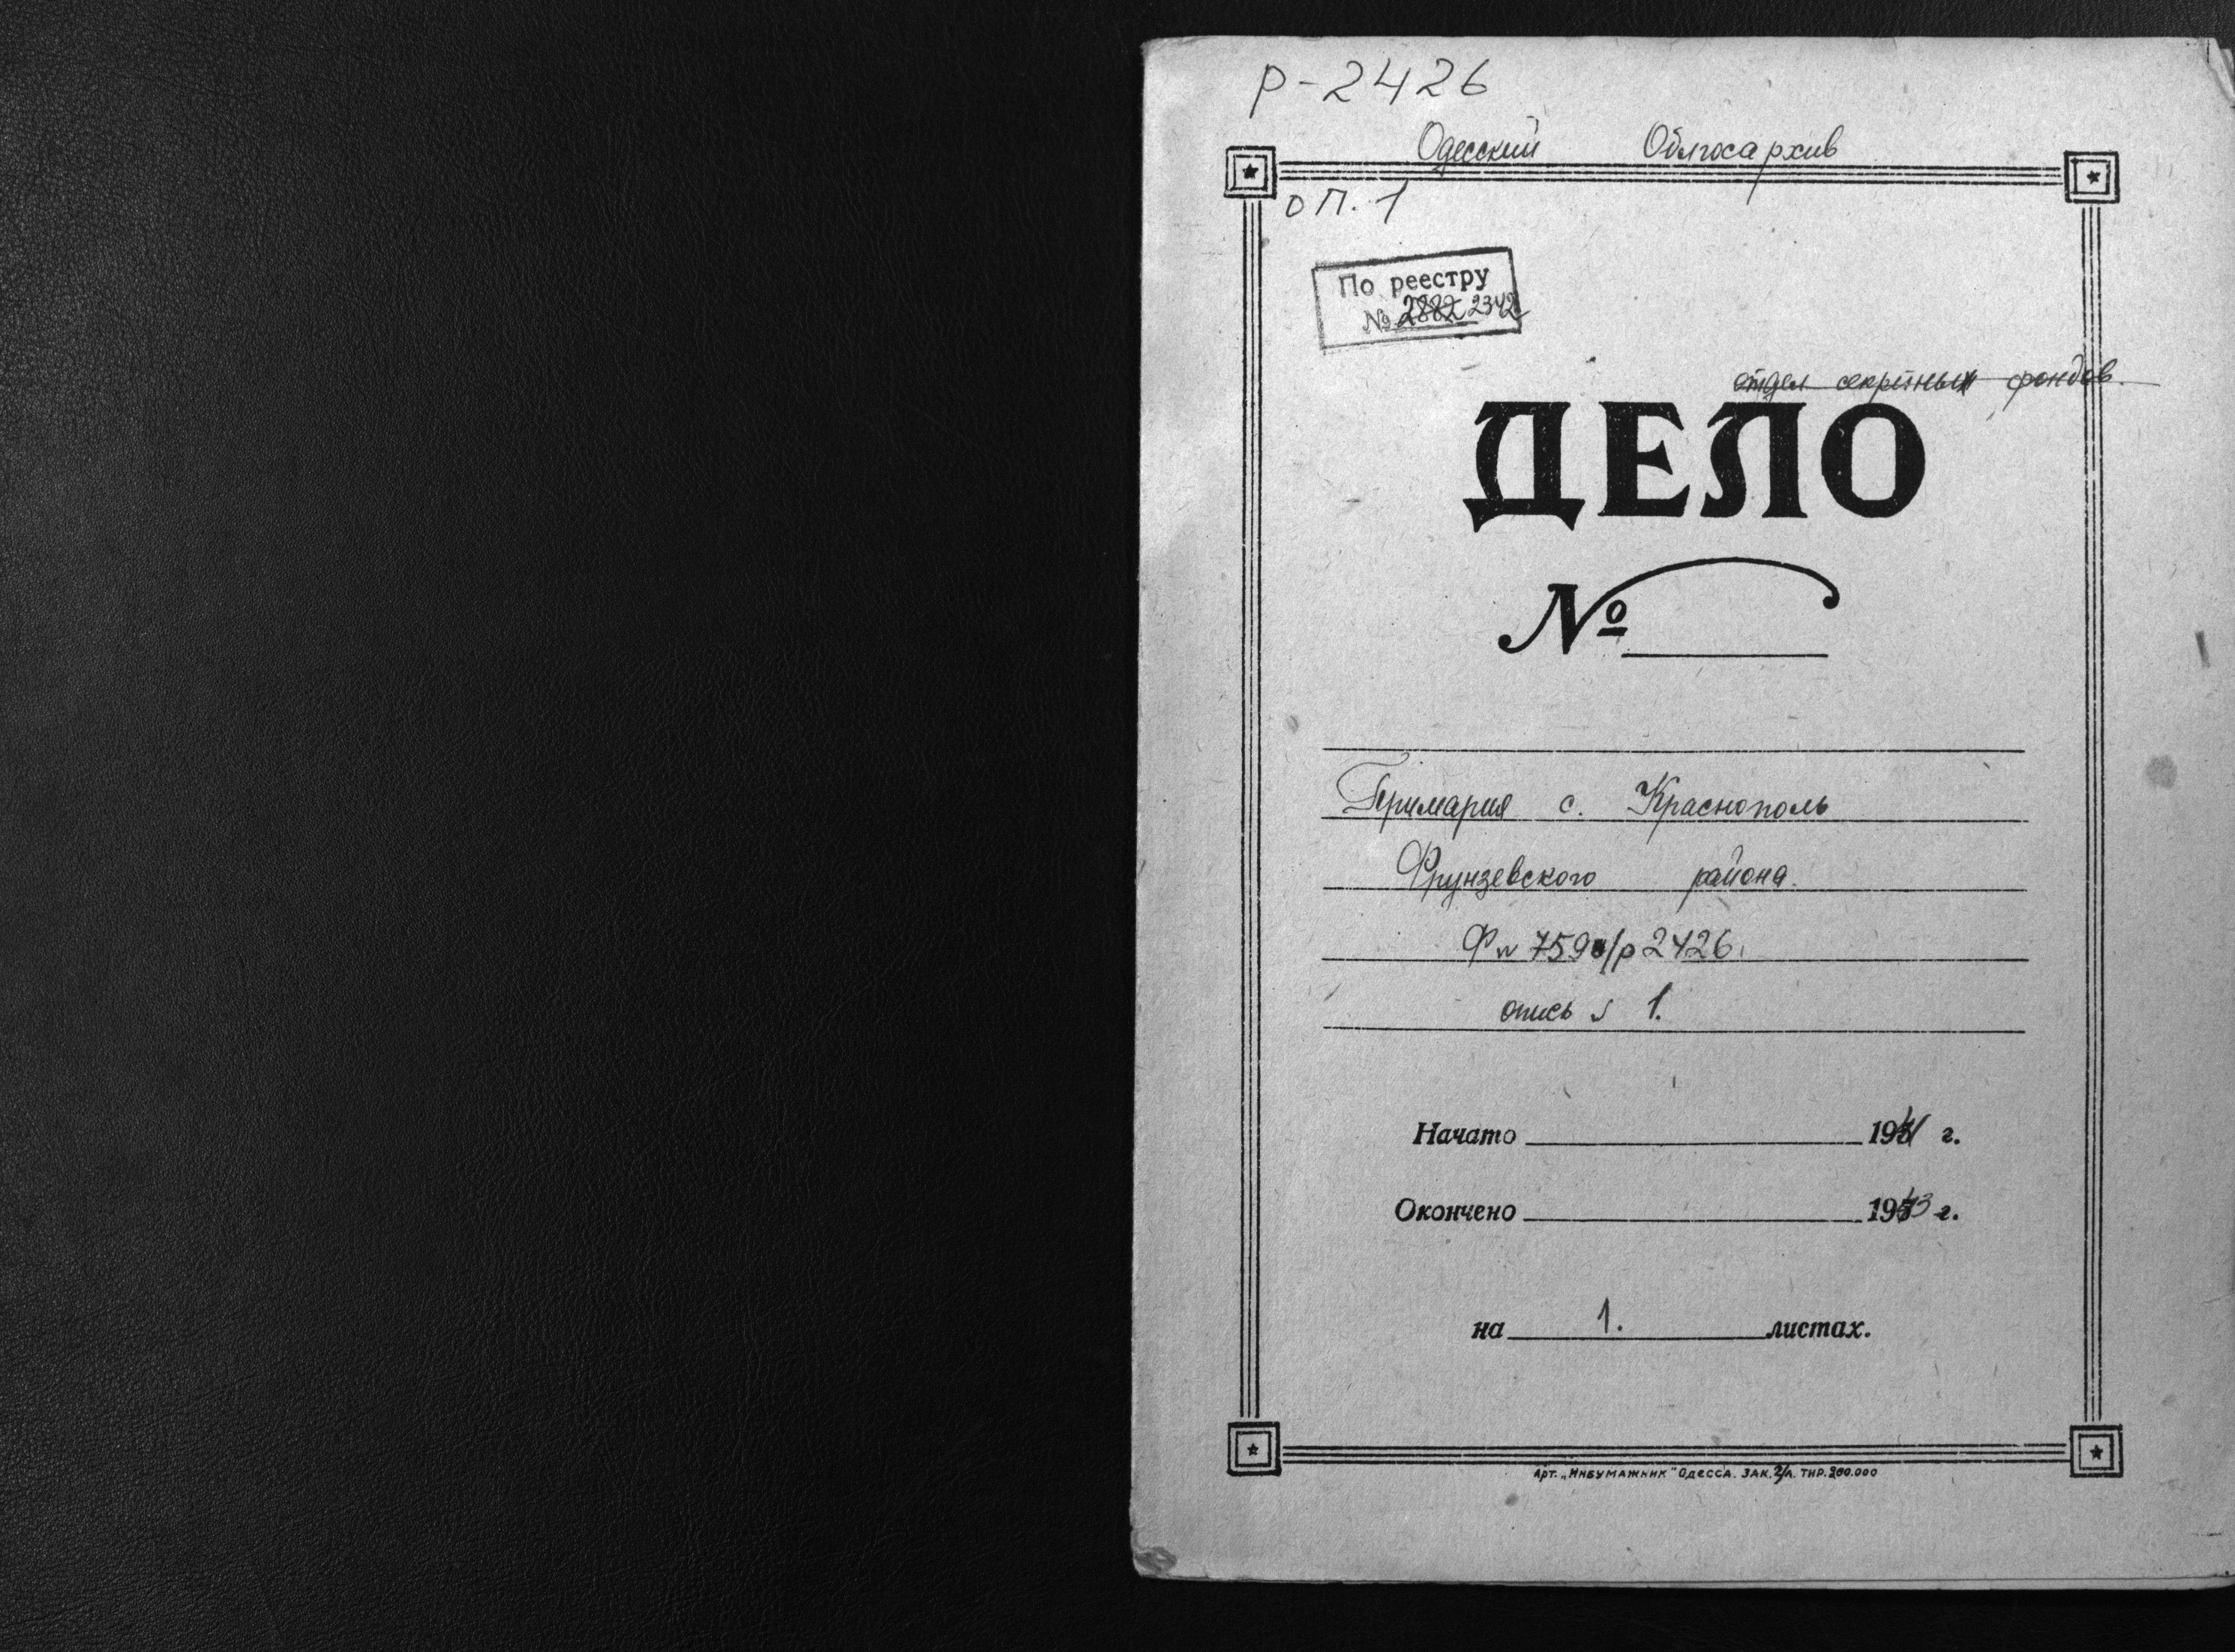 Р-2426
Одесский Облгосархив
оп. 1
По реестру
№ 2882 2342
отдел секретных фондов.
ДЕЛО
№
Примария с. Краснополь
Фрунзевского района.
Ф № /р 2426.
опись № 1.
Начато 1941 г.
Окончено 1943 г.
на 1. листах.
Арт. „Инбумажник" Одесса. Зак. Тир. 200.000